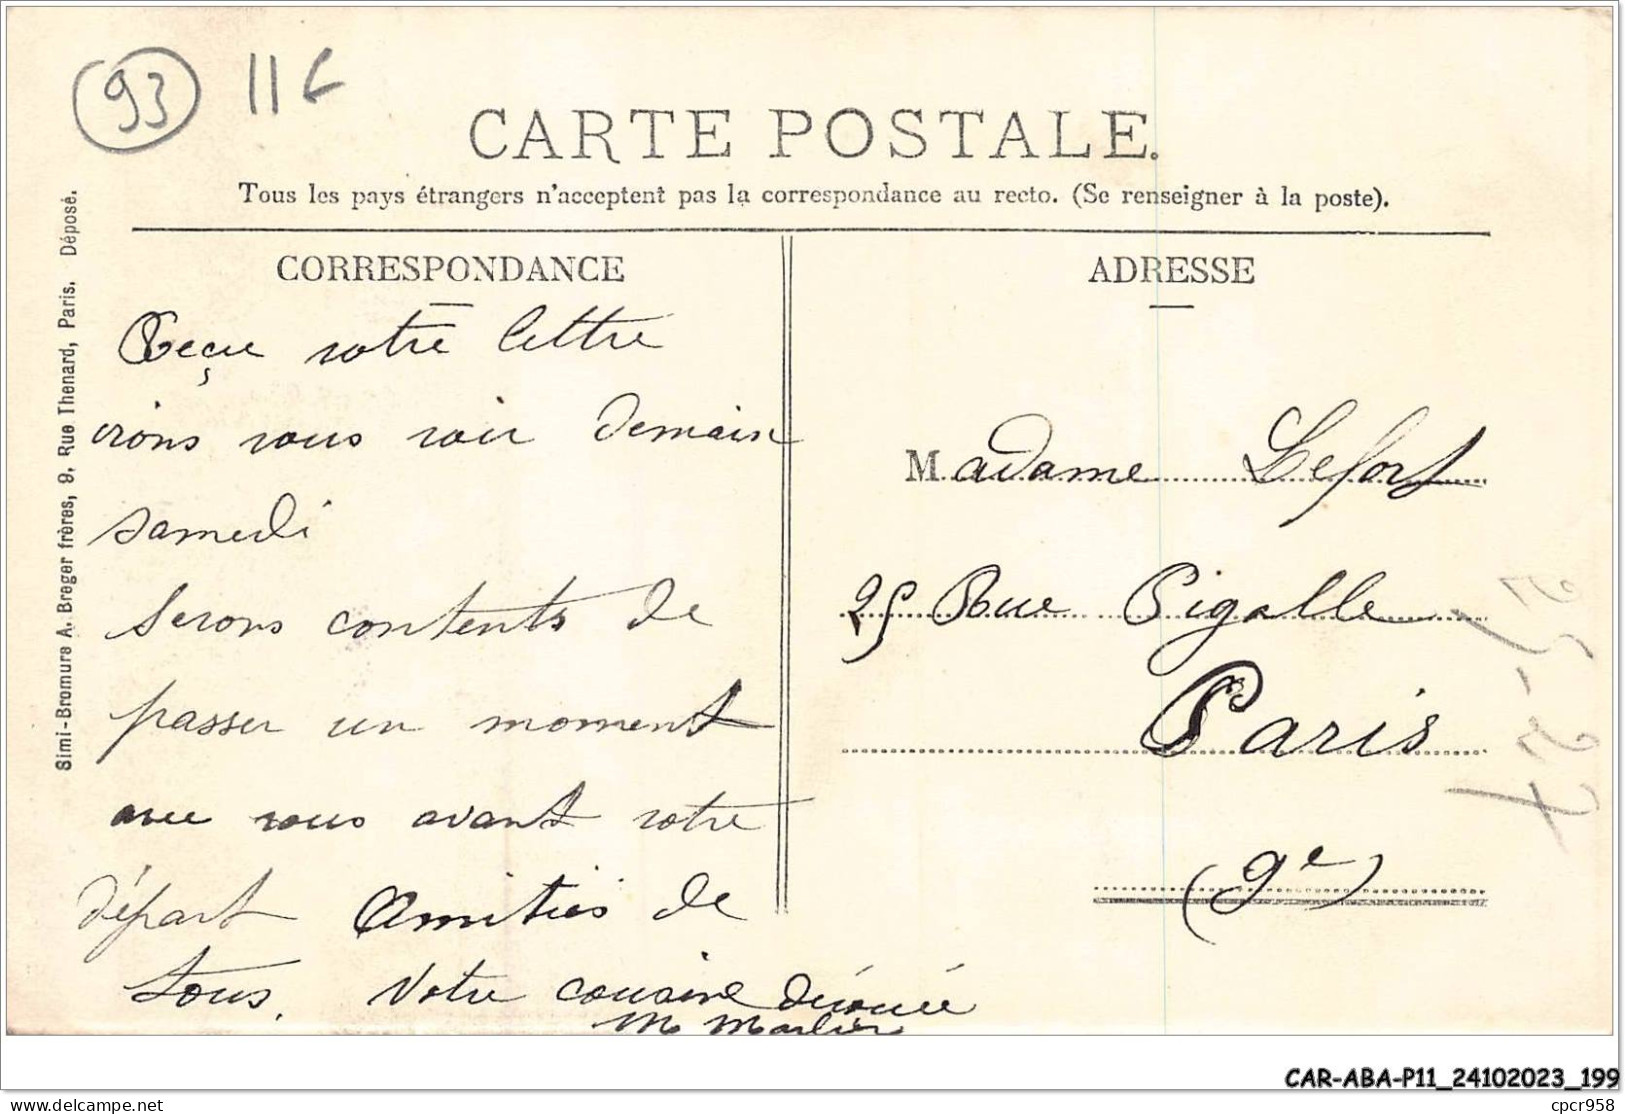 93 11€
CARTE POSTALE.
Tous les pays étrangers n'acceptent pas la correspondance au recto. (Se renseigner à la poste).
Simi-Bromure A. Breger frères, 9, Rue Thenard, Paris. Déposé.
CORRESPONDANCE
Reçu votre lettre
irons vous voir demain
samedi
Serons contents de
passer un moment
avec vous avant votre
départ Amitiés de
tous. Votre cousine dévouée
M Marlier
ADRESSE
Madame Lefort
25 Rue Pigalle
Paris
(9e)
CAR-ABA-P11_24102023_199
delcampe.net
cpcr958